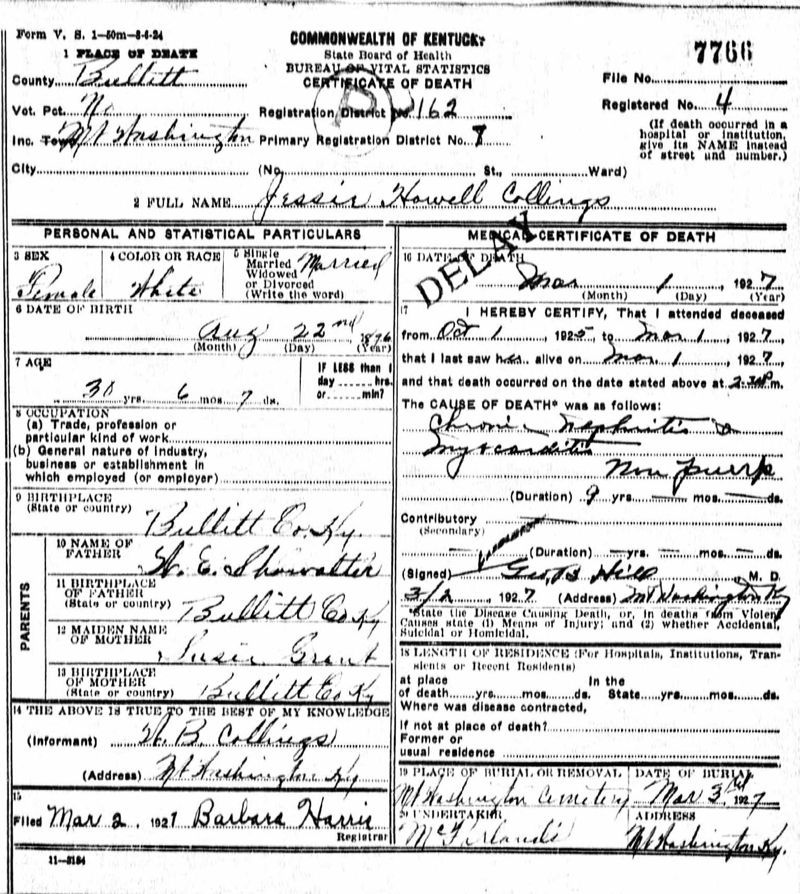 Form V. S. 1-50m-8-6-24
COMMONWEALTH OF KENTUCKY
State Board of Health
BUREAU OF VITAL STATISTICS
CERTIFICATE OF DEATH
7766
1 PLACE OF DEATH
County Bullitt
File No.
Vot. Pct. No
Registration District No. 162
Registered No. 4
Inc. Town Mt Washington
Primary Registration District No. 8
(If death occurred in a hospital or institution, give its NAME instead of street and number.)
City (No. St., Ward)
2 FULL NAME Jessie Howell Collings
DELAY
PERSONAL AND STATISTICAL PARTICULARS
3 SEX Female
4 COLOR OR RACE White
5 Single Married Widowed or Divorced (Write the word) Married
6 DATE OF BIRTH
Aug 22nd 1896
(Month) (Day) (Year)
7 AGE
30 yrs. 6 mos. 7 ds.
IF LESS than 1 day ...... hrs. or ...... min?
8 OCCUPATION
(a) Trade, profession or
particular kind of work
(b) General nature of industry,
business or establishment in
which employed (or employer)
9 BIRTHPLACE
(State or country)
Bullitt Co. Ky.
PARENTS
10 NAME OF FATHER
W. E. Showalter
11 BIRTHPLACE OF FATHER
(State or country) Bullitt Co Ky
12 MAIDEN NAME OF MOTHER
Susie Grant
13 BIRTHPLACE OF MOTHER
(State or country) Bullitt Co Ky
14 THE ABOVE IS TRUE TO THE BEST OF MY KNOWLEDGE
(Informant) W. B. Collings
(Address) Mt Washington Ky
15
Filed Mar 2, 1927 Barbara Harris
Registrar
11-3184
MEDICAL CERTIFICATE OF DEATH
16 DATE OF DEATH
Mar 1, 1927
(Month) (Day) (Year)
17 I HEREBY CERTIFY, That I attended deceased
from Oct 1, 1925, to Mar 1, 1927
that I last saw her alive on Mar 1, 1927
and that death occurred on the date stated above at m.
The CAUSE OF DEATH* was as follows:
Chronic nephritis &
myocarditis
Non puerp
(Duration) 9 yrs. — mos. — ds.
Contributory
(Secondary)
(Duration) — yrs. — mos. — ds.
(Signed) Geo. B Hill M. D.
3/2, 1927 (Address) Mt Washington Ky
*State the Disease Causing Death, or, in deaths from Violent
Causes state (1) Means of Injury; and (2) whether Accidental,
Suicidal or Homicidal.
18 LENGTH OF RESIDENCE (For Hospitals, Institutions, Tran-
sients or Recent Residents)
at place In the
of death yrs. mos. ds. State yrs. mos. ds.
Where was disease contracted,
If not at place of death?
Former or
usual residence
19 PLACE OF BURIAL OR REMOVAL
Mt Washington Cemetery
DATE OF BURIAL
Mar 3rd 1927
20 UNDERTAKER
ADDRESS
Mt Washington Ky.